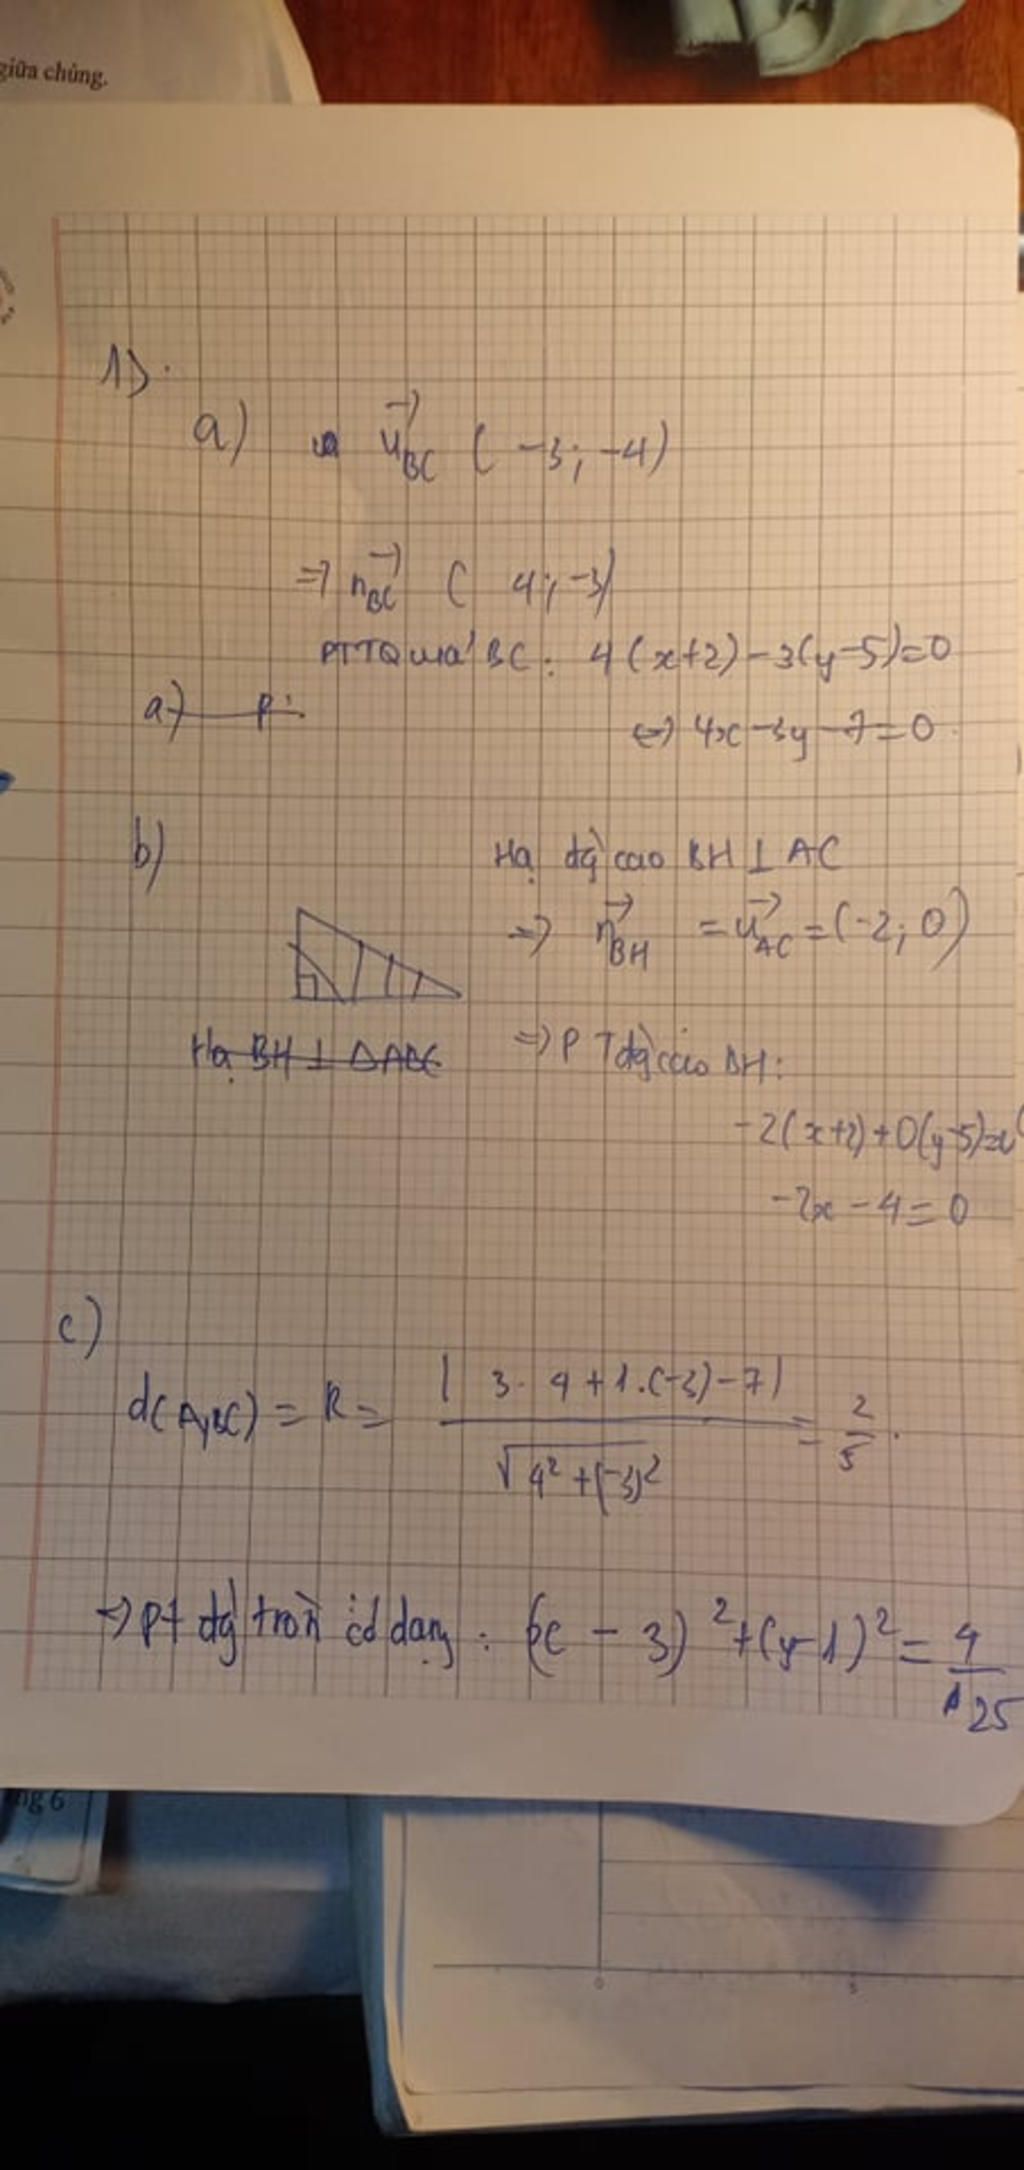 giữa chúng.
1).
a) u⃗BC ( -3; -4)
=> n⃗BC ( 4; -3)
PTTQ của BC: 4(x+2)-3(y-5)=0
a) P:
<=> 4x-3y-7=0
b) Hạ đg cao BH ⊥ AC
=> n⃗BH = u⃗AC = (-2; 0)
Hạ BH ⊥ ΔABC
=> PT đg cao BH:
-2(x+2)+0(y-5)=0
-2x-4=0
c)
d(A,BC) = R = |3.4+1.(-3)-7| / √4²+(-3)² = 2/5.
=> pt đg tròn có dạng: (x-3)²+(y-1)²= 4/25
ng 6
0 5